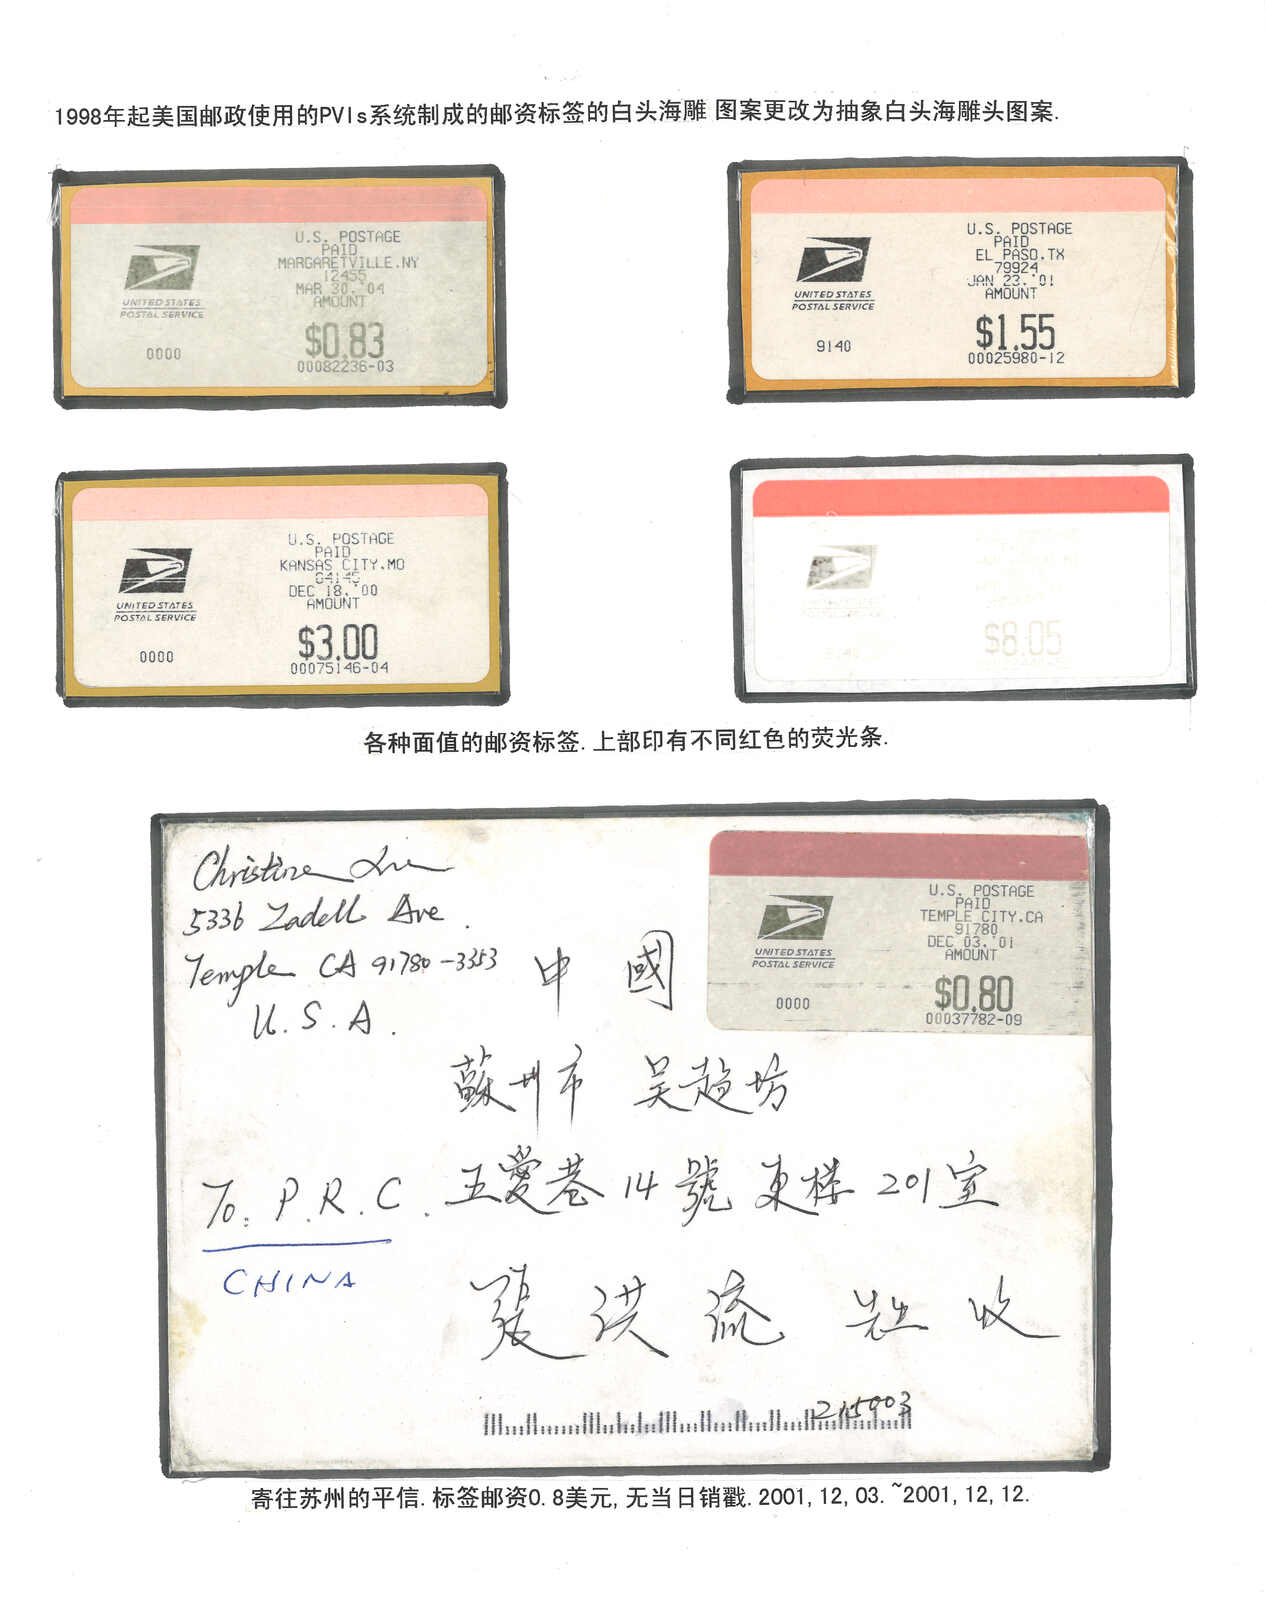 1998年起美国邮政使用的PVIs系统制成的邮资标签的白头海雕 图案更改为抽象白头海雕头图案.
U.S. POSTAGE
PAID
MARGARETVILLE.NY
12455
MAR 30.'04
AMOUNT
$0.83
00082236-03
UNITED STATES
POSTAL SERVICE
0000
U.S. POSTAGE
PAID
EL PASO.TX
79924
JAN 23.'01
AMOUNT
$1.55
00025980-12
UNITED STATES
POSTAL SERVICE
9140
U.S. POSTAGE
PAID
KANSAS CITY.MO
DEC 18.'00
AMOUNT
$3.00
00075146-04
UNITED STATES
POSTAL SERVICE
0000
$8.05
各种面值的邮资标签.上部印有不同红色的荧光条.
Christine
5336 Zadell Ave.
Temple CA 91780-3353
U.S.A.
U.S. POSTAGE
PAID
TEMPLE CITY.CA
91780
DEC 03.'01
AMOUNT
$0.80
00037782-09
UNITED STATES
POSTAL SERVICE
0000
中國
蘇州市 吴趋坊
五愛巷14號東楼201室
To. P.R.C.
CHINA
張洪流 先生 收
215003
寄往苏州的平信.标签邮资0.8美元,无当日销戳.2001,12,03.~2001,12,12.